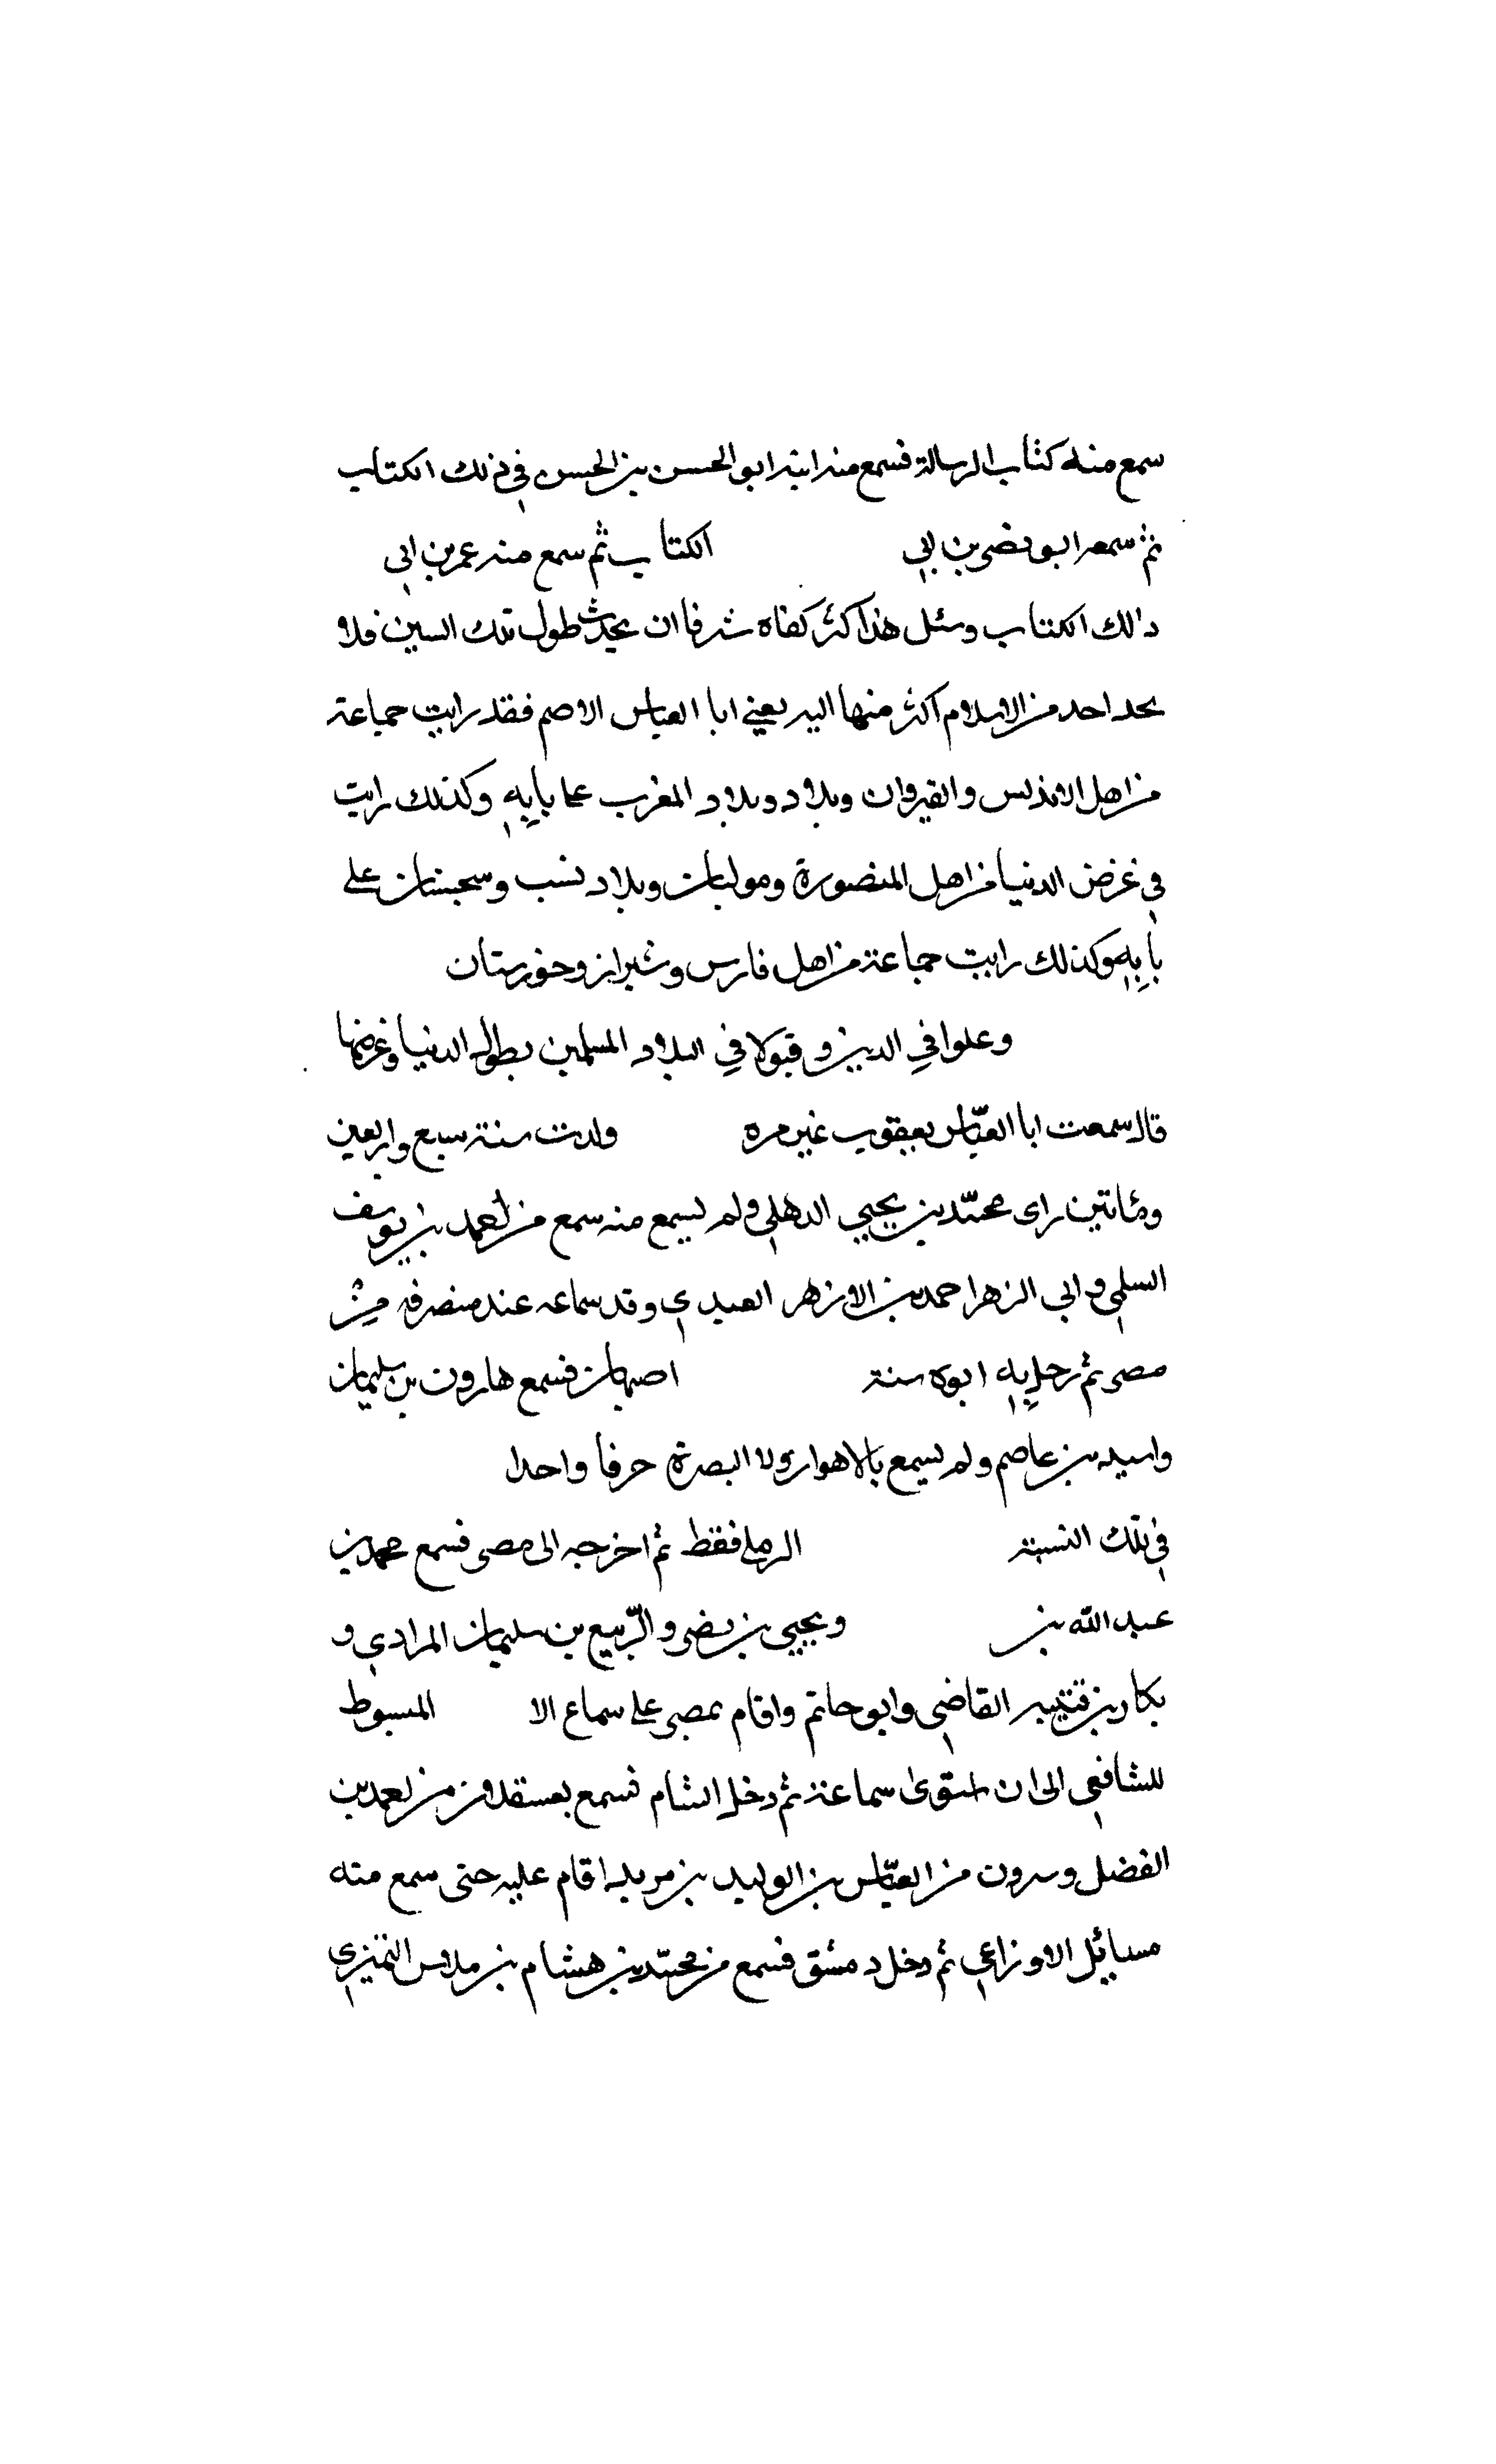 سمع منه كتاب الرسالة فسمع منه ابنه ابو الحسن بن الحسن في ذلك الكتاب
ثم سمعه ابو نصر بن ابي الكتاب ثم سمع منه عمر بن ابي
ذالك الكتاب ومثل هذا اكثر كفاه شرفا ان يحدث طول تلك السين فلا
يحد احد من الاسلام اكثر منها اليه يعني ابا العباس الاصم فقد رايت جماعة
من اهل الاندلس والقيروان وبلاد وبلاد المغرب على بابه وكذلك رايت
في عرض الدنيا من اهل المنصورة ومولتان وبلاد نسب وسجستان على
بابه وكذلك رايت جماعة من اهل فارس وشيراز وخورستان
وعلوا في الدين وقبولا في البلاد المسلمين بطول الدنيا وعرضها
قال سمعت ابا العباس يعقوب غير مره ولدت سنة سبع واربعين
ومئاتين راى محمد بن يحيى الدهلي ولم يسمع منه سمع من احمد بن يوسف
السلمي وابي الزهر احمد بن الازهر العبدي وقد سماعه عند منصرفه من
مصر ثم رحل به ابوه سنة اصبهان فسمع هارون بن سليمان
واسيد بن عاصم ولم يسمع بالاهواز ولا البصرة حرفا واحدا
في تلك النسبة الرملي فقط ثم اخرجه الى مصر فسمع محمد بن
عبد الله بن ويحيى بن نصر والربيع بن سليمان المرادي و
بكار بن قتيبه القاضي وابو حاتم واقام بمصر على سماع الا المسبوط
للشافعي الى ان استوى سماعة ثم دخل الشام فسمع بعسقلان من احمد بن
الفضل وبيرون من العباس بن الوليد بن مريد اقام عليه حتى سمع منه
مسايل الاوزاعي ثم دخل دمشق فسمع من محمد بن هشام بن ملاس النميري